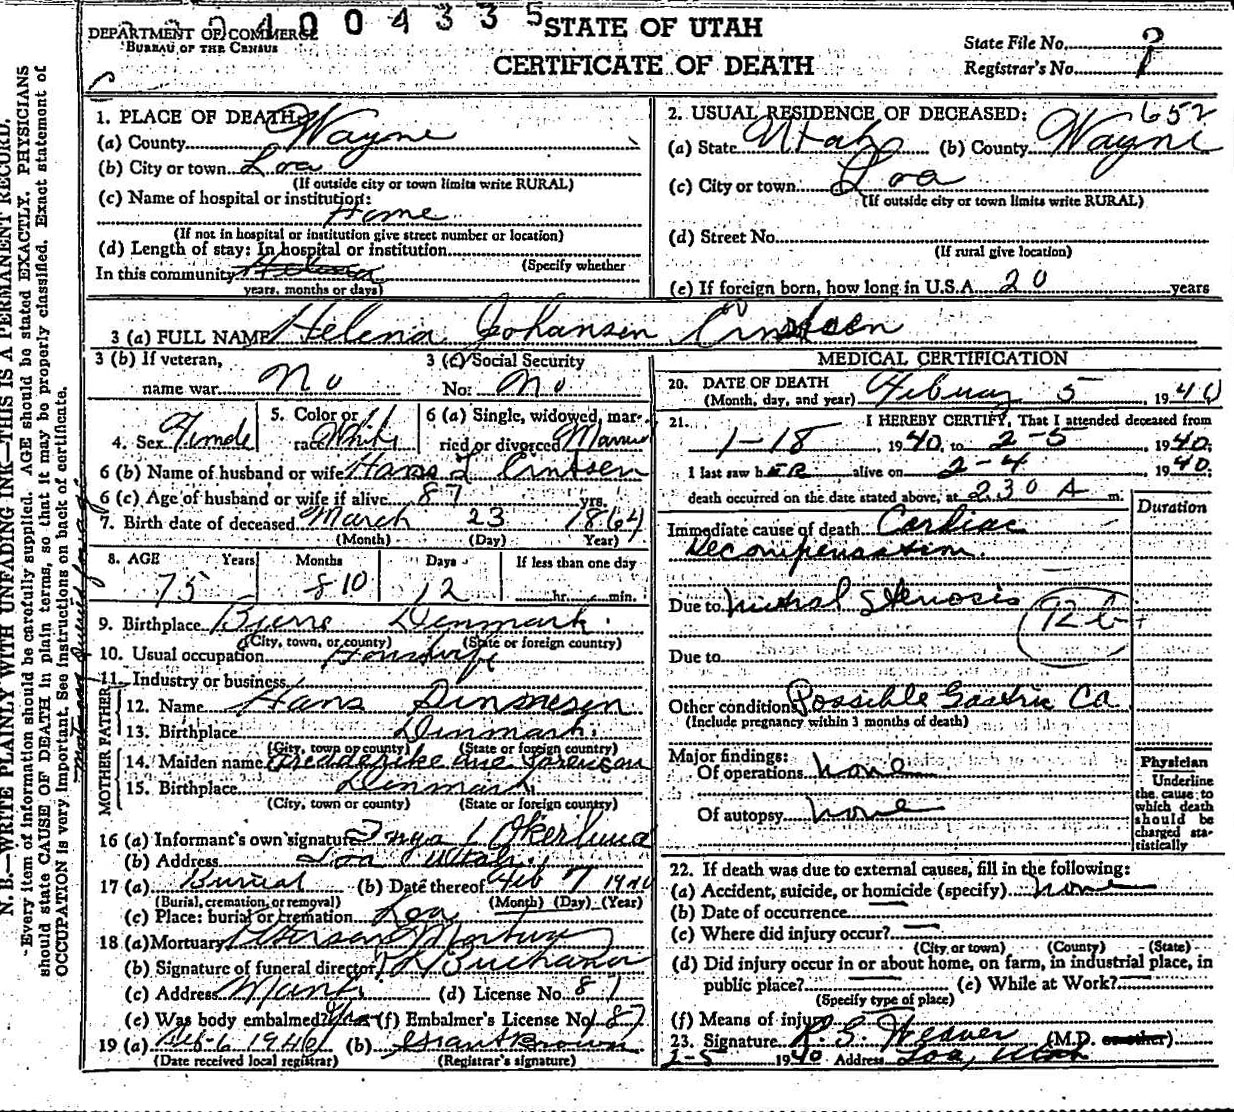 4 0 0 4 3 3 5
DEPARTMENT OF COMMERCE
BUREAU OF THE CENSUS
STATE OF UTAH
CERTIFICATE OF DEATH
State File No.
Registrar's No. 1
N. B.—WRITE PLAINLY WITH UNFADING INK—THIS IS A PERMANENT RECORD.
Every item of information should be carefully supplied. AGE should be stated EXACTLY. PHYSICIANS
should state CAUSE OF DEATH in plain terms, so that it may be properly classified. Exact statement of
OCCUPATION is very important. See instructions on back of certificate.
1. PLACE OF DEATH:
(a) County Wayne
(b) City or town Loa
(If outside city or town limits write RURAL)
(c) Name of hospital or institution:
Home
(If not in hospital or institution give street number or location)
(d) Length of stay: In hospital or institution
(Specify whether
In this community
years, months or days)
2. USUAL RESIDENCE OF DECEASED: 652
(a) State Utah (b) County Wayne
(c) City or town Loa
(If outside city or town limits write RURAL)
(d) Street No.
(If rural give location)
(e) If foreign born, how long in U.S.A. 20 years
3 (a) FULL NAME Helena Johansen
3 (b) If veteran,
name war No
3 (c) Social Security
No: No
4. Sex Female
5. Color or
race White
6 (a) Single, widowed, mar-
ried or divorced Married
6 (b) Name of husband or wife Hans L
6 (c) Age of husband or wife if alive 87 yrs.
7. Birth date of deceased March 23 1864
(Month) (Day) Year)
8. AGE Years Months Days If less than one day
75 10 12 hr. min.
9. Birthplace Denmark
(City, town, or county) (State or foreign country)
10. Usual occupation Housewife
11. Industry or business
FATHER
12. Name Hans
13. Birthplace Denmark
(City, town or county) (State or foreign country)
MOTHER
14. Maiden name
15. Birthplace Denmark
(City, town or county) (State or foreign country)
16 (a) Informant's own signature Okerlund
(b) Address Loa Utah
17 (a) Burial (b) Date thereof Feb 7 1940
(Burial, cremation, or removal) (Month) (Day) (Year)
(c) Place: burial or cremation Loa
18 (a) Mortuary Mortuary
(b) Signature of funeral director Buchanan
(c) Address Manti (d) License No. 87
(e) Was body embalmed? Yes (f) Embalmer's License No. 187
19 (a) Feb-6 1940 (b) Grant Brown
(Date received local registrar) (Registrar's signature)
MEDICAL CERTIFICATION
20. DATE OF DEATH
(Month, day, and year) Febuary 5, 1940
21. I HEREBY CERTIFY, That I attended deceased from
1-18 1940, to 2-5 1940;
I last saw hER alive on 2-4 1940;
death occurred on the date stated above, at 230 A m.
Duration
Immediate cause of death Cardiac
Decompensation.
Due to Mitral Stenosis
92 b
Due to
Other conditions Possible Gastric Ca
(Include pregnancy within 3 months of death)
Major findings:
Of operations none
Of autopsy none
Physician
Underline
the cause to
which death
should be
charged sta-
tistically
22. If death was due to external causes, fill in the following:
(a) Accident, suicide, or homicide (specify) none
(b) Date of occurrence
(c) Where did injury occur?
(City or town) (County) (State)
(d) Did injury occur in or about home, on farm, in industrial place, in
public place? (e) While at Work?
(Specify type of place)
(f) Means of injury
23. Signature R. G. Weaver (M.D. or other)
2-5 1940 Address Loa, Utah